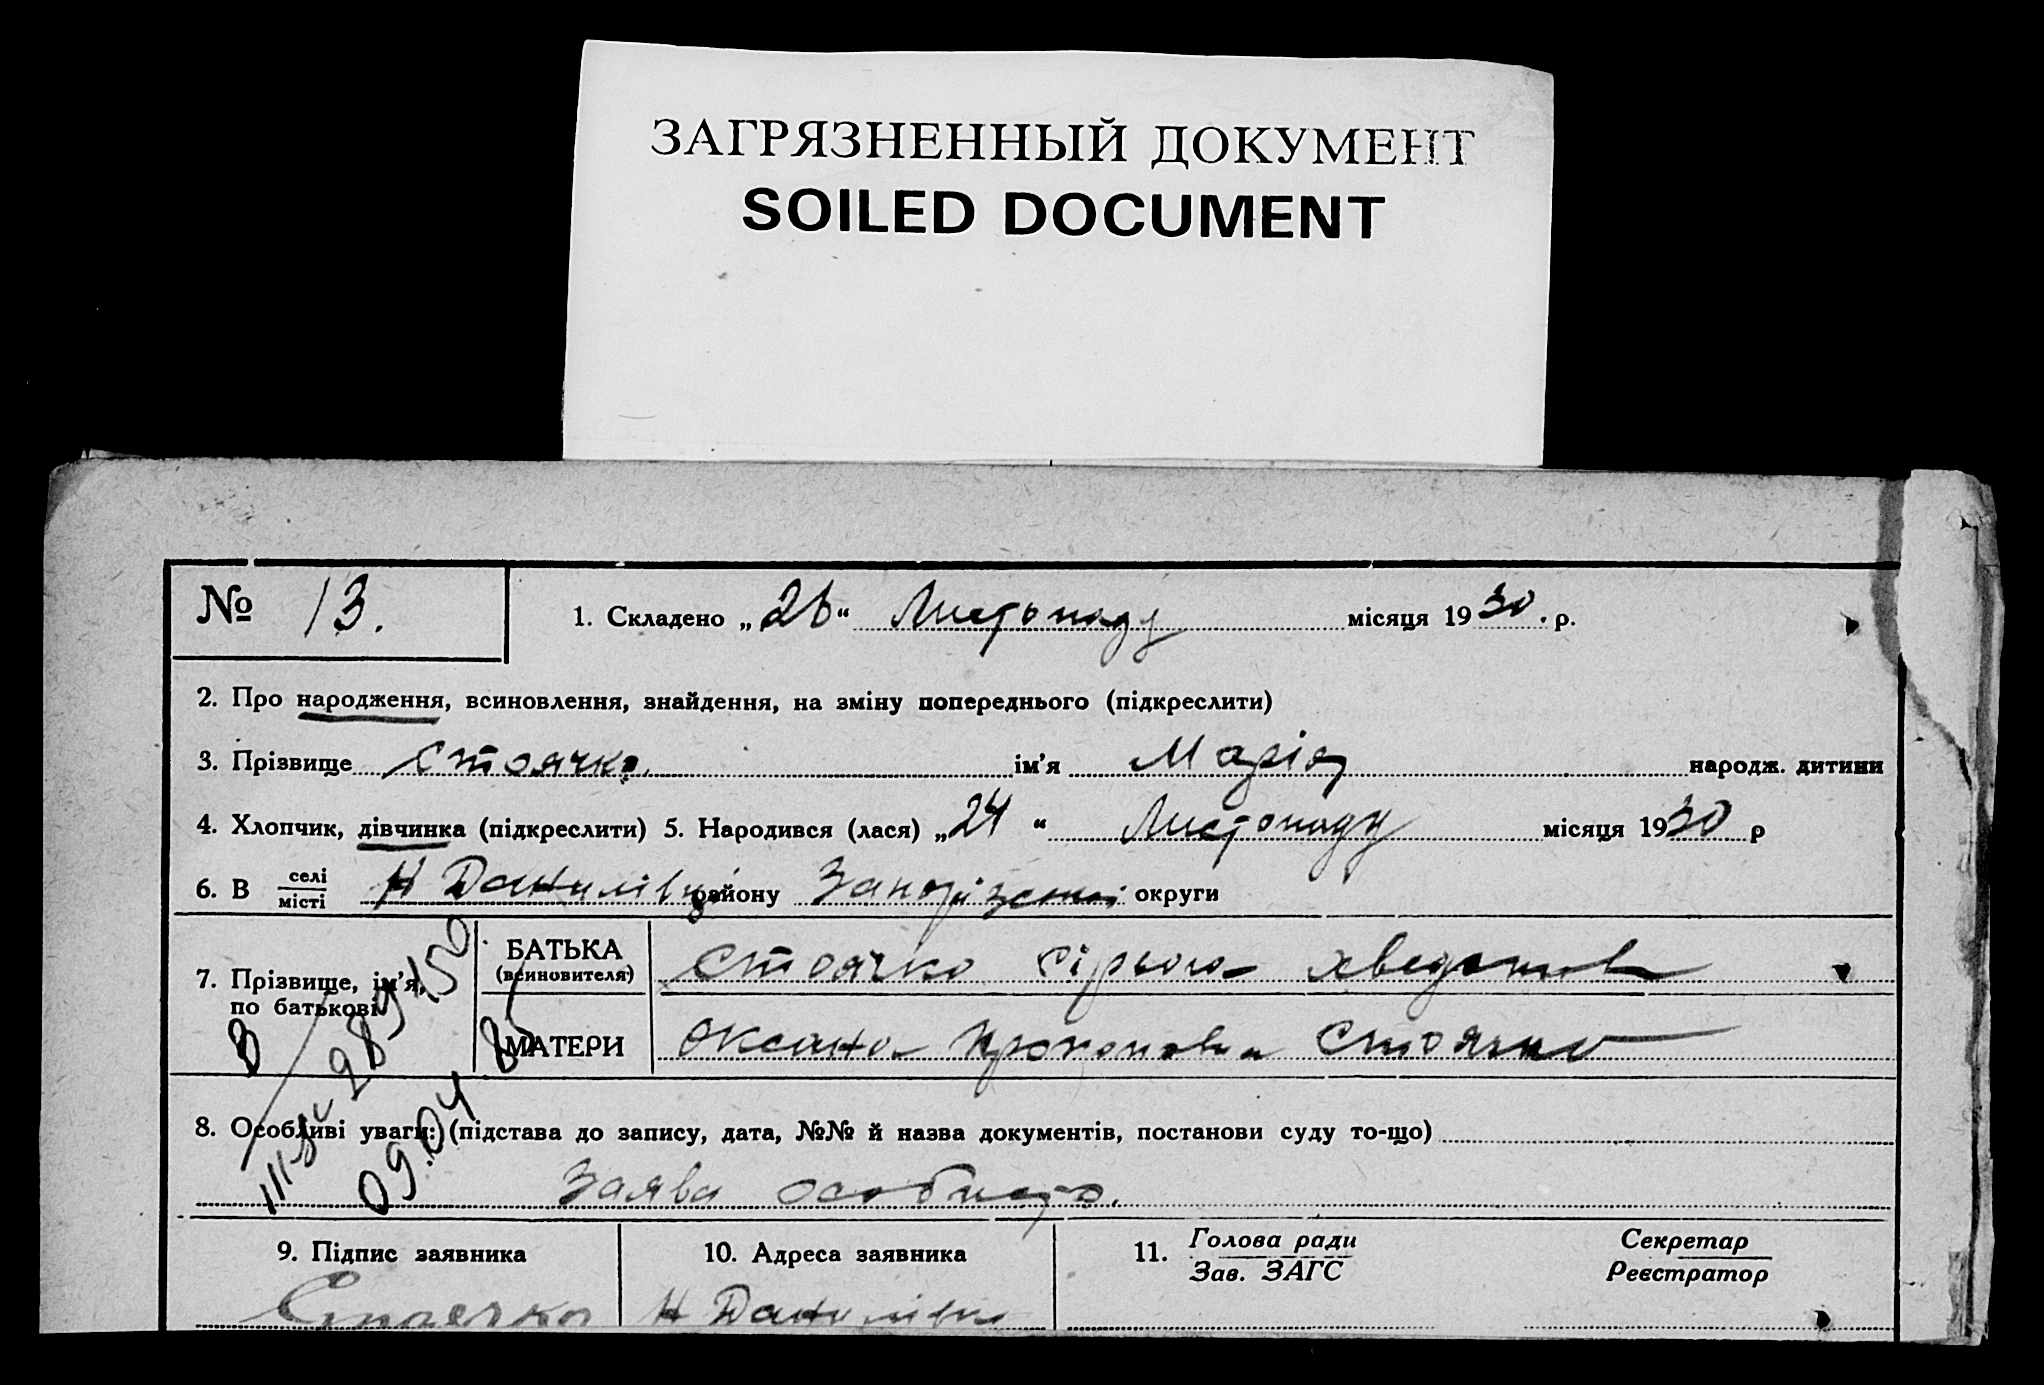 ЗАГРЯЗНЕННЫЙ ДОКУМЕНТ
SOILED DOCUMENT
№ 13.
1. Складено „26“ Листопаду місяця 1930. р.
2. Про народження, всиновлення, знайдення, на зміну попереднього (підкреслити)
3. Прізвище Стоячко ім’я Марія народж. дитини
4. Хлопчик, дівчинка (підкреслити) 5. Народився (лася) „24“ Листопаду місяця 1930 р
6. В селі
місті Н Данилівці району Запорізської округи
7. Прізвище, ім’я,
по батькові
БАТЬКА
(всиновителя)
Стоячко
МАТЕРИ
Оксана Прокоповна Стоячко
8. Особливі уваги: (підстава до запису, дата, №№ й назва документів, постанови суду то-що)
09.04
Заява особисто.
9. Підпис заявника
Стоячко
10. Адреса заявника
Н Данилівка
11. Голова ради
Зав. ЗАГС
Секретар
Реєстратор